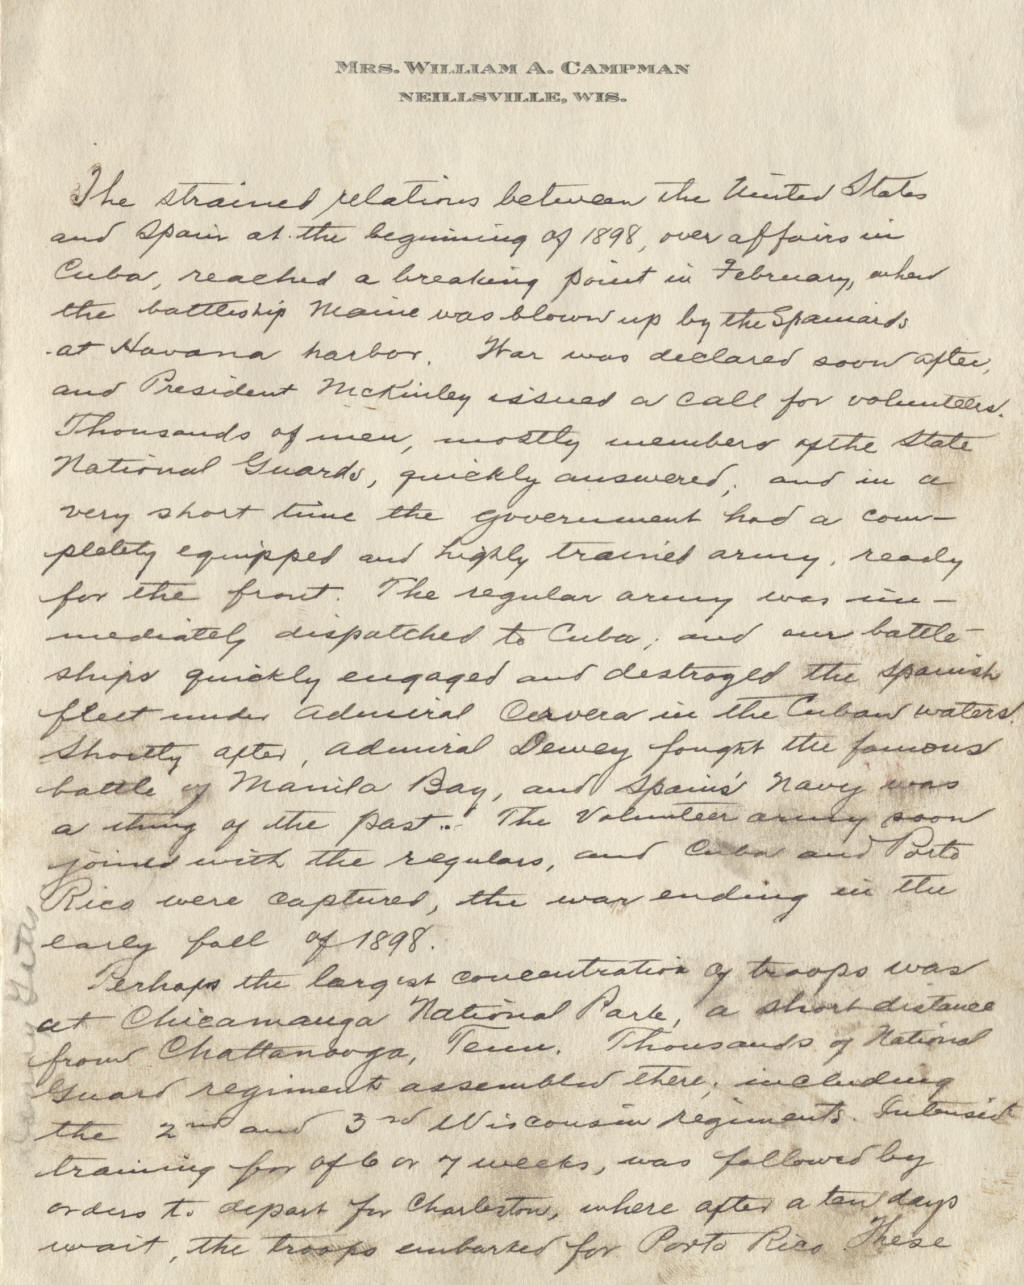 MRS. WILLIAM A. CAMPMAN
NEILLSVILLE, WIS.
The strained relations between the United States
and Spain at the beginning of 1898, over affairs in
Cuba, reached a breaking point in February, when
the battleship Maine was blown up by the Spaniards
at Havana harbor. War was declared soon after,
and President McKinley issued a call for volunteers.
Thousands of men, mostly members of the State
National Guards, quickly answered; and in a
very short time the government had a com-
pletety equipped and highly trained army, ready
for the front. The regular army was im-
mediately dispatched to Cuba; and our battle-
ships quickly engaged and destroyed the Spanish
fleet under Admiral Cervera in the Cuban waters.
Shortly after, Admiral Dewey fought the famous
battle of Manila Bay, and Spain's Navy was
a thing of the past. The Volunteer army soon
joined with the regulars, and Cuba and Porto
Rico were captured, the war ending in the
early fall of 1898.
Perhaps the largest concentration of troops was
at Chicamauga National Park, a short distance
from Chattanooga, Tenn. Thousands of National
Guard regiments assembled there, including
the 2nd and 3rd Wisconsin regiments. Intensive
training for of 6 or 7 weeks, was followed by
orders to depart for Charleston, where after a ten days
wait, the troops embarked for Porto Rico. These